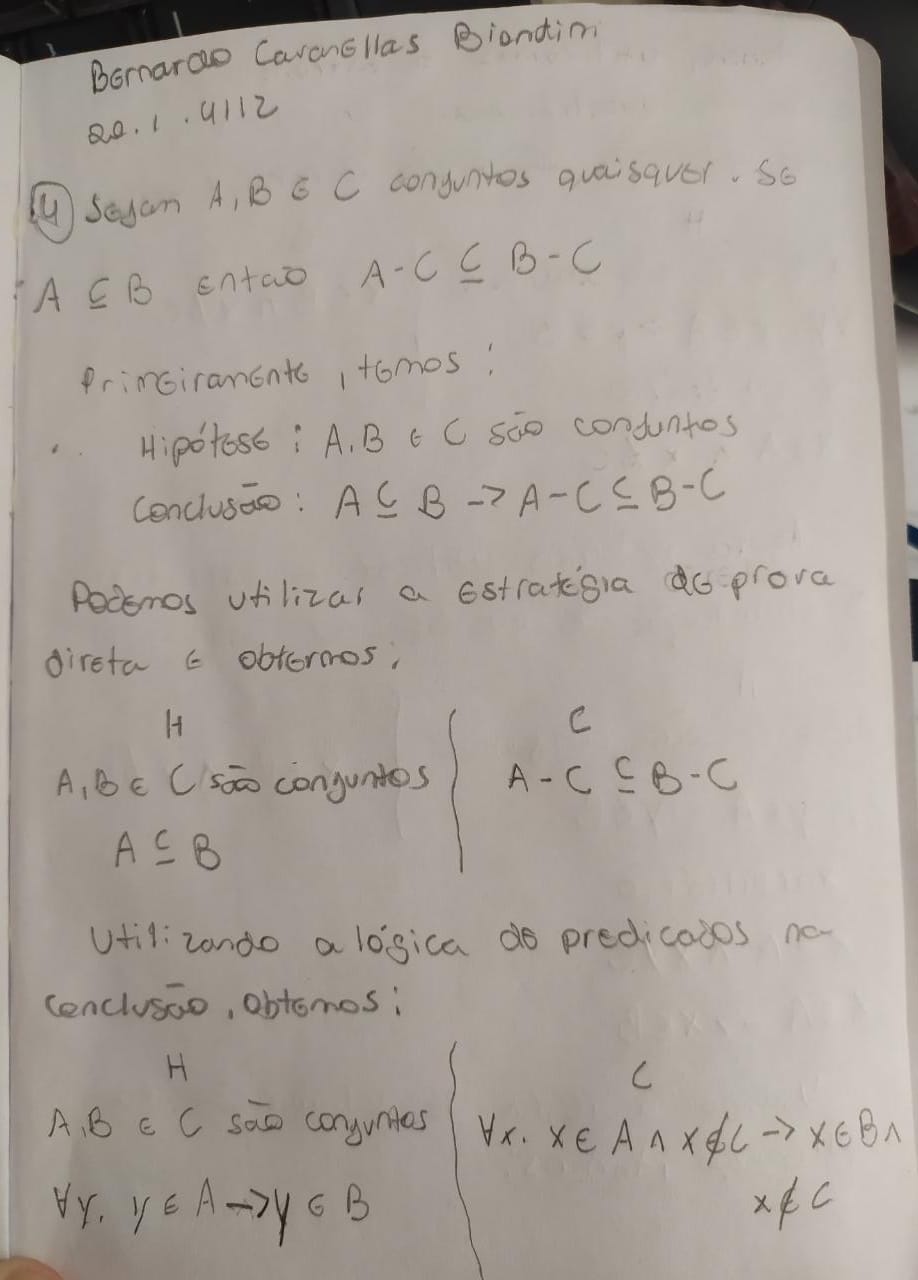 Bernardo Cavanellas Biondini
20.1.4112
4 Sejam A, B e C conjuntos quaisquer. Se
A ⊆ B então A - C ⊆ B - C
Primeiramente, temos:
Hipótese: A, B e C são conjuntos
Conclusão: A ⊆ B -> A - C ⊆ B - C
Podemos utilizar a estratégia de prova
direta e obtermos:
H C
A, B e C são conjuntos A - C ⊆ B - C
A ⊆ B
Utilizando a lógica de predicados na
conclusão, obtemos:
H C
A, B e C são conjuntos ∀x. x ∈ A ∧ x ∉ C -> x ∈ B ∧
∀y. y ∈ A -> y ∈ B x ∉ C